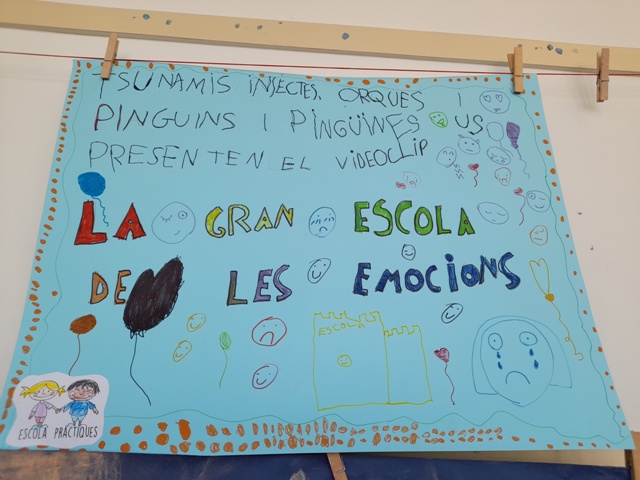 TSUNAMIS INSECTES, ORQUES I
PINGUINS I PINGÜINES US
PRESENTEN EL VIDEOCLIP
LA GRAN ESCOLA
DE LES EMOCIONS
ESCOLA
ESCOLA PRÀCTIQUES